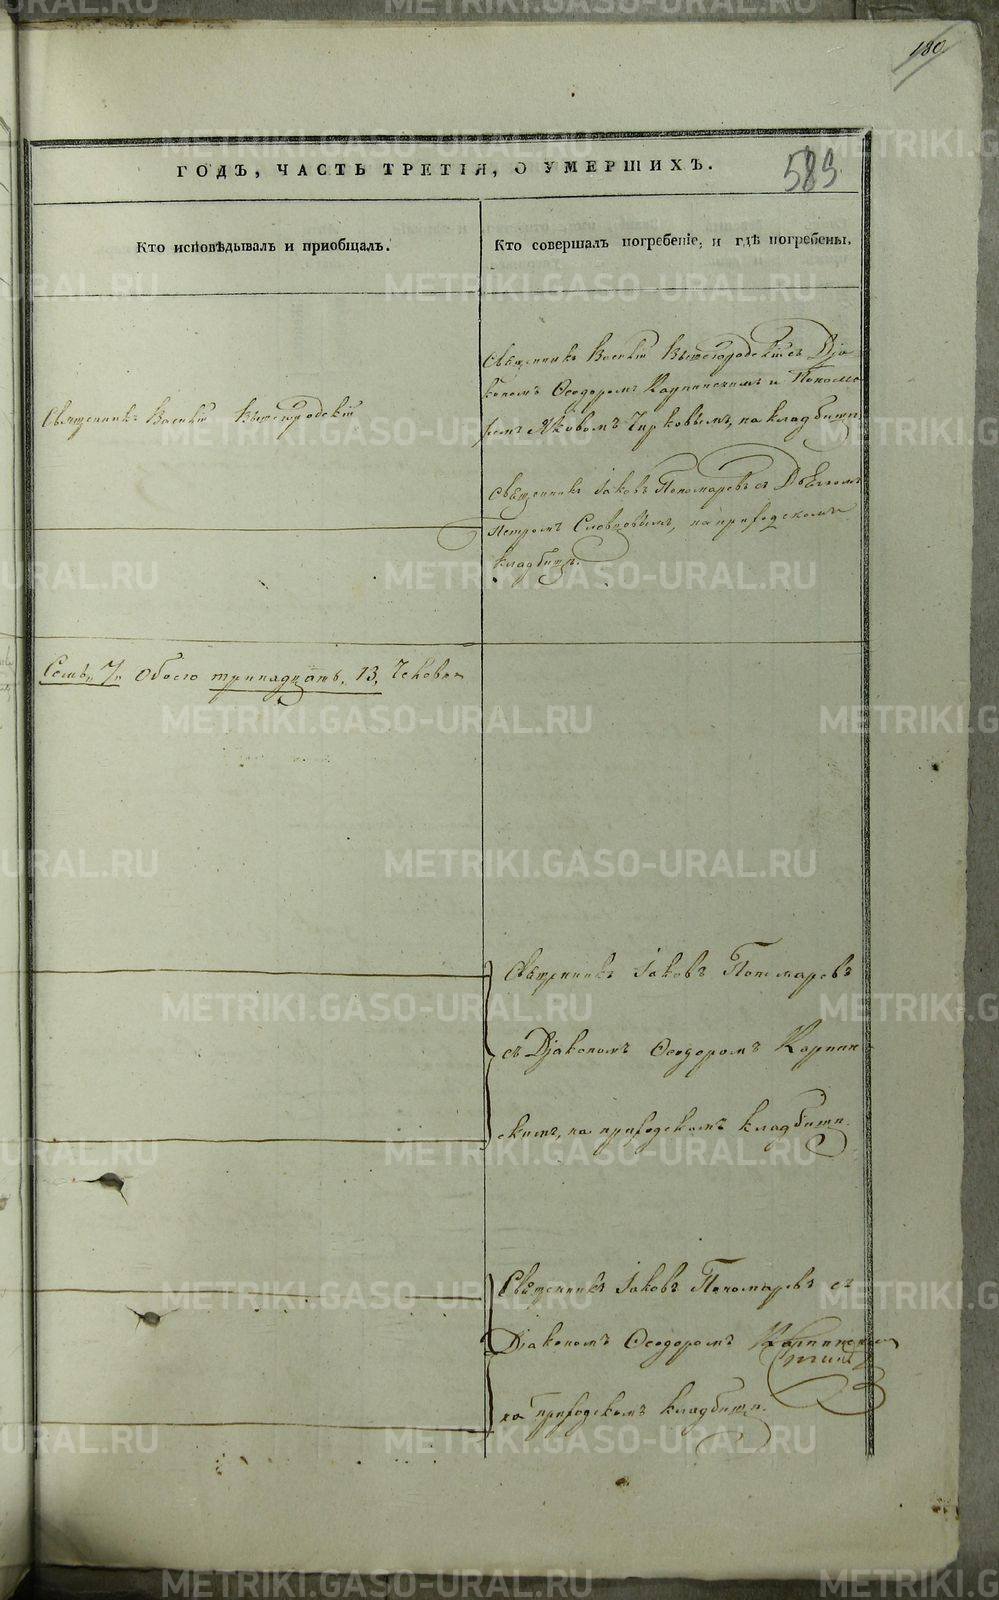 180
ГОДЪ, ЧАСТЬ ТРЕТІЯ, О УМЕРШИХЪ.
589.
Кто исповѣдывалъ и приобщалъ.
Кто совершалъ погребеніе, и гдѣ погребены.
Священникъ Василій Вышегородскій
Священникъ Василій Вышегородскій съ Діа-
кономъ Ѳеодоромъ Карпинскимъ и Понома-
ремъ Яковомъ Чирковымъ, на кладбищѣ.
Священникъ Іаковъ Пономаревъ съ
Петромъ Словцовымъ, на приходскомъ
кладбищѣ.
Семь, 7. Обоего тринадцать, 13, Человѣкъ
Священникъ Іаковъ Пономаревъ
съ Діакономъ Ѳеодоромъ Карпин-
скимъ, на приходскомъ кладбищѣ.
Священникъ Іаковъ Пономаревъ съ
Діакономъ Ѳеодоромъ Карпинским
на приходскомъ кладбищѣ.
METRIKI.GASO-URAL.RU